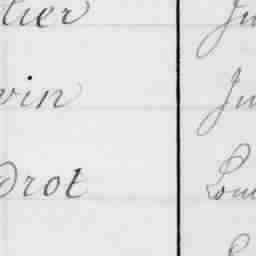 lier Ju
vin Ju
drot Lou